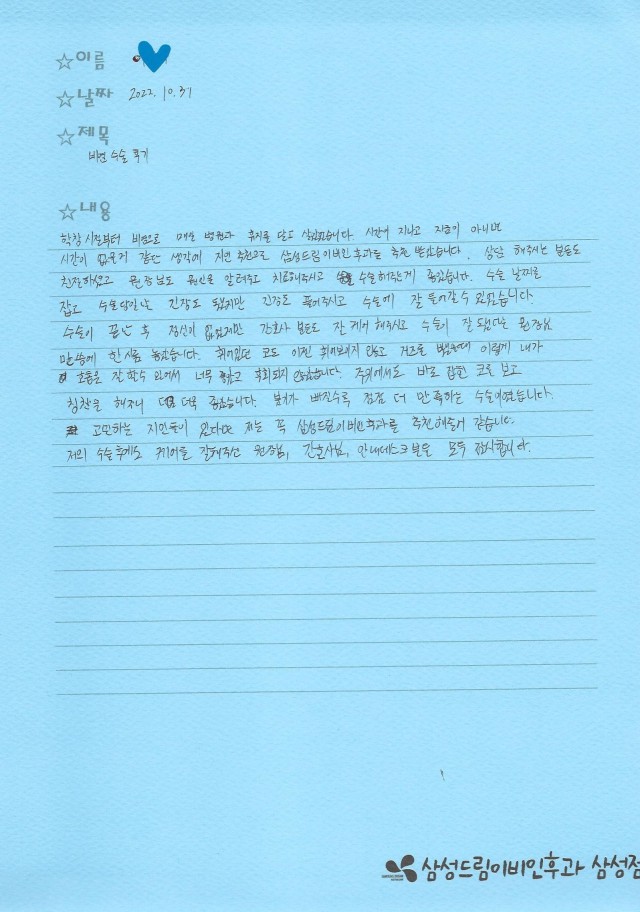 ☆이름
☆날짜 2022. 10. 31
☆제목
비염 수술 후기
☆내용
학창시절부터 비염으로 매번 병원과 휴지를 달고 살았었습니다. 시간이 지나고 지금이 아니면
시간이 없을거 같단 생각에 지인 추천으로 삼성드림이비인후과를 추천 받았습니다. 상담 해주시는 분들도
친절하였고 원장님도 원인을 알려주고 치료해주시고 수술해주는게 좋았습니다. 수술 날짜를
잡고 수술당일날 긴장도 됐지만 긴장도 풀어주시고 수술에 잘 들어갈 수 있었습니다.
수술이 끝난 후 정신이 없었지만 간호사 분들도 잘 케어 해주시고 수술이 잘 됐다는 원장님
말씀에 한시름 놓았습니다. 휘어있던 코도 이젠 휘어보이지 않고 거즈를 이렇게 내가
호흡을 잘 할수 있어서 너무 좋았고 후회되지 않았습니다. 주위에서도 바로 잡힌 코를 보고
칭찬을 해주니 더욱 좋았습니다. 붓기가 빠질수록 점점 더 만족하는 수술이였습니다.
고민하는 지인들이 있다면 저는 꼭 삼성드림이비인후과를 추천해줄거 같습니다.
저의 수술후에도 케어를 잘해주신 원장님, 간호사님, 안내데스크분들 모두 감사합니다.
삼성드림이비인후과 삼성점